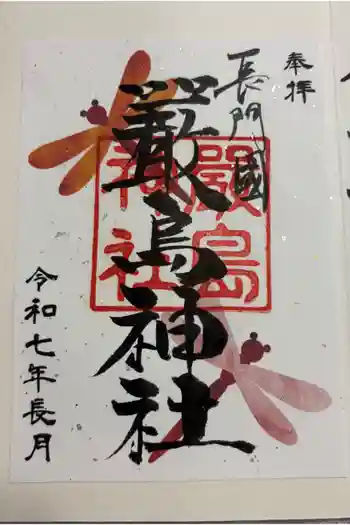 奉拝
長門國
嚴島神社
嚴島
神社
令和七年長月